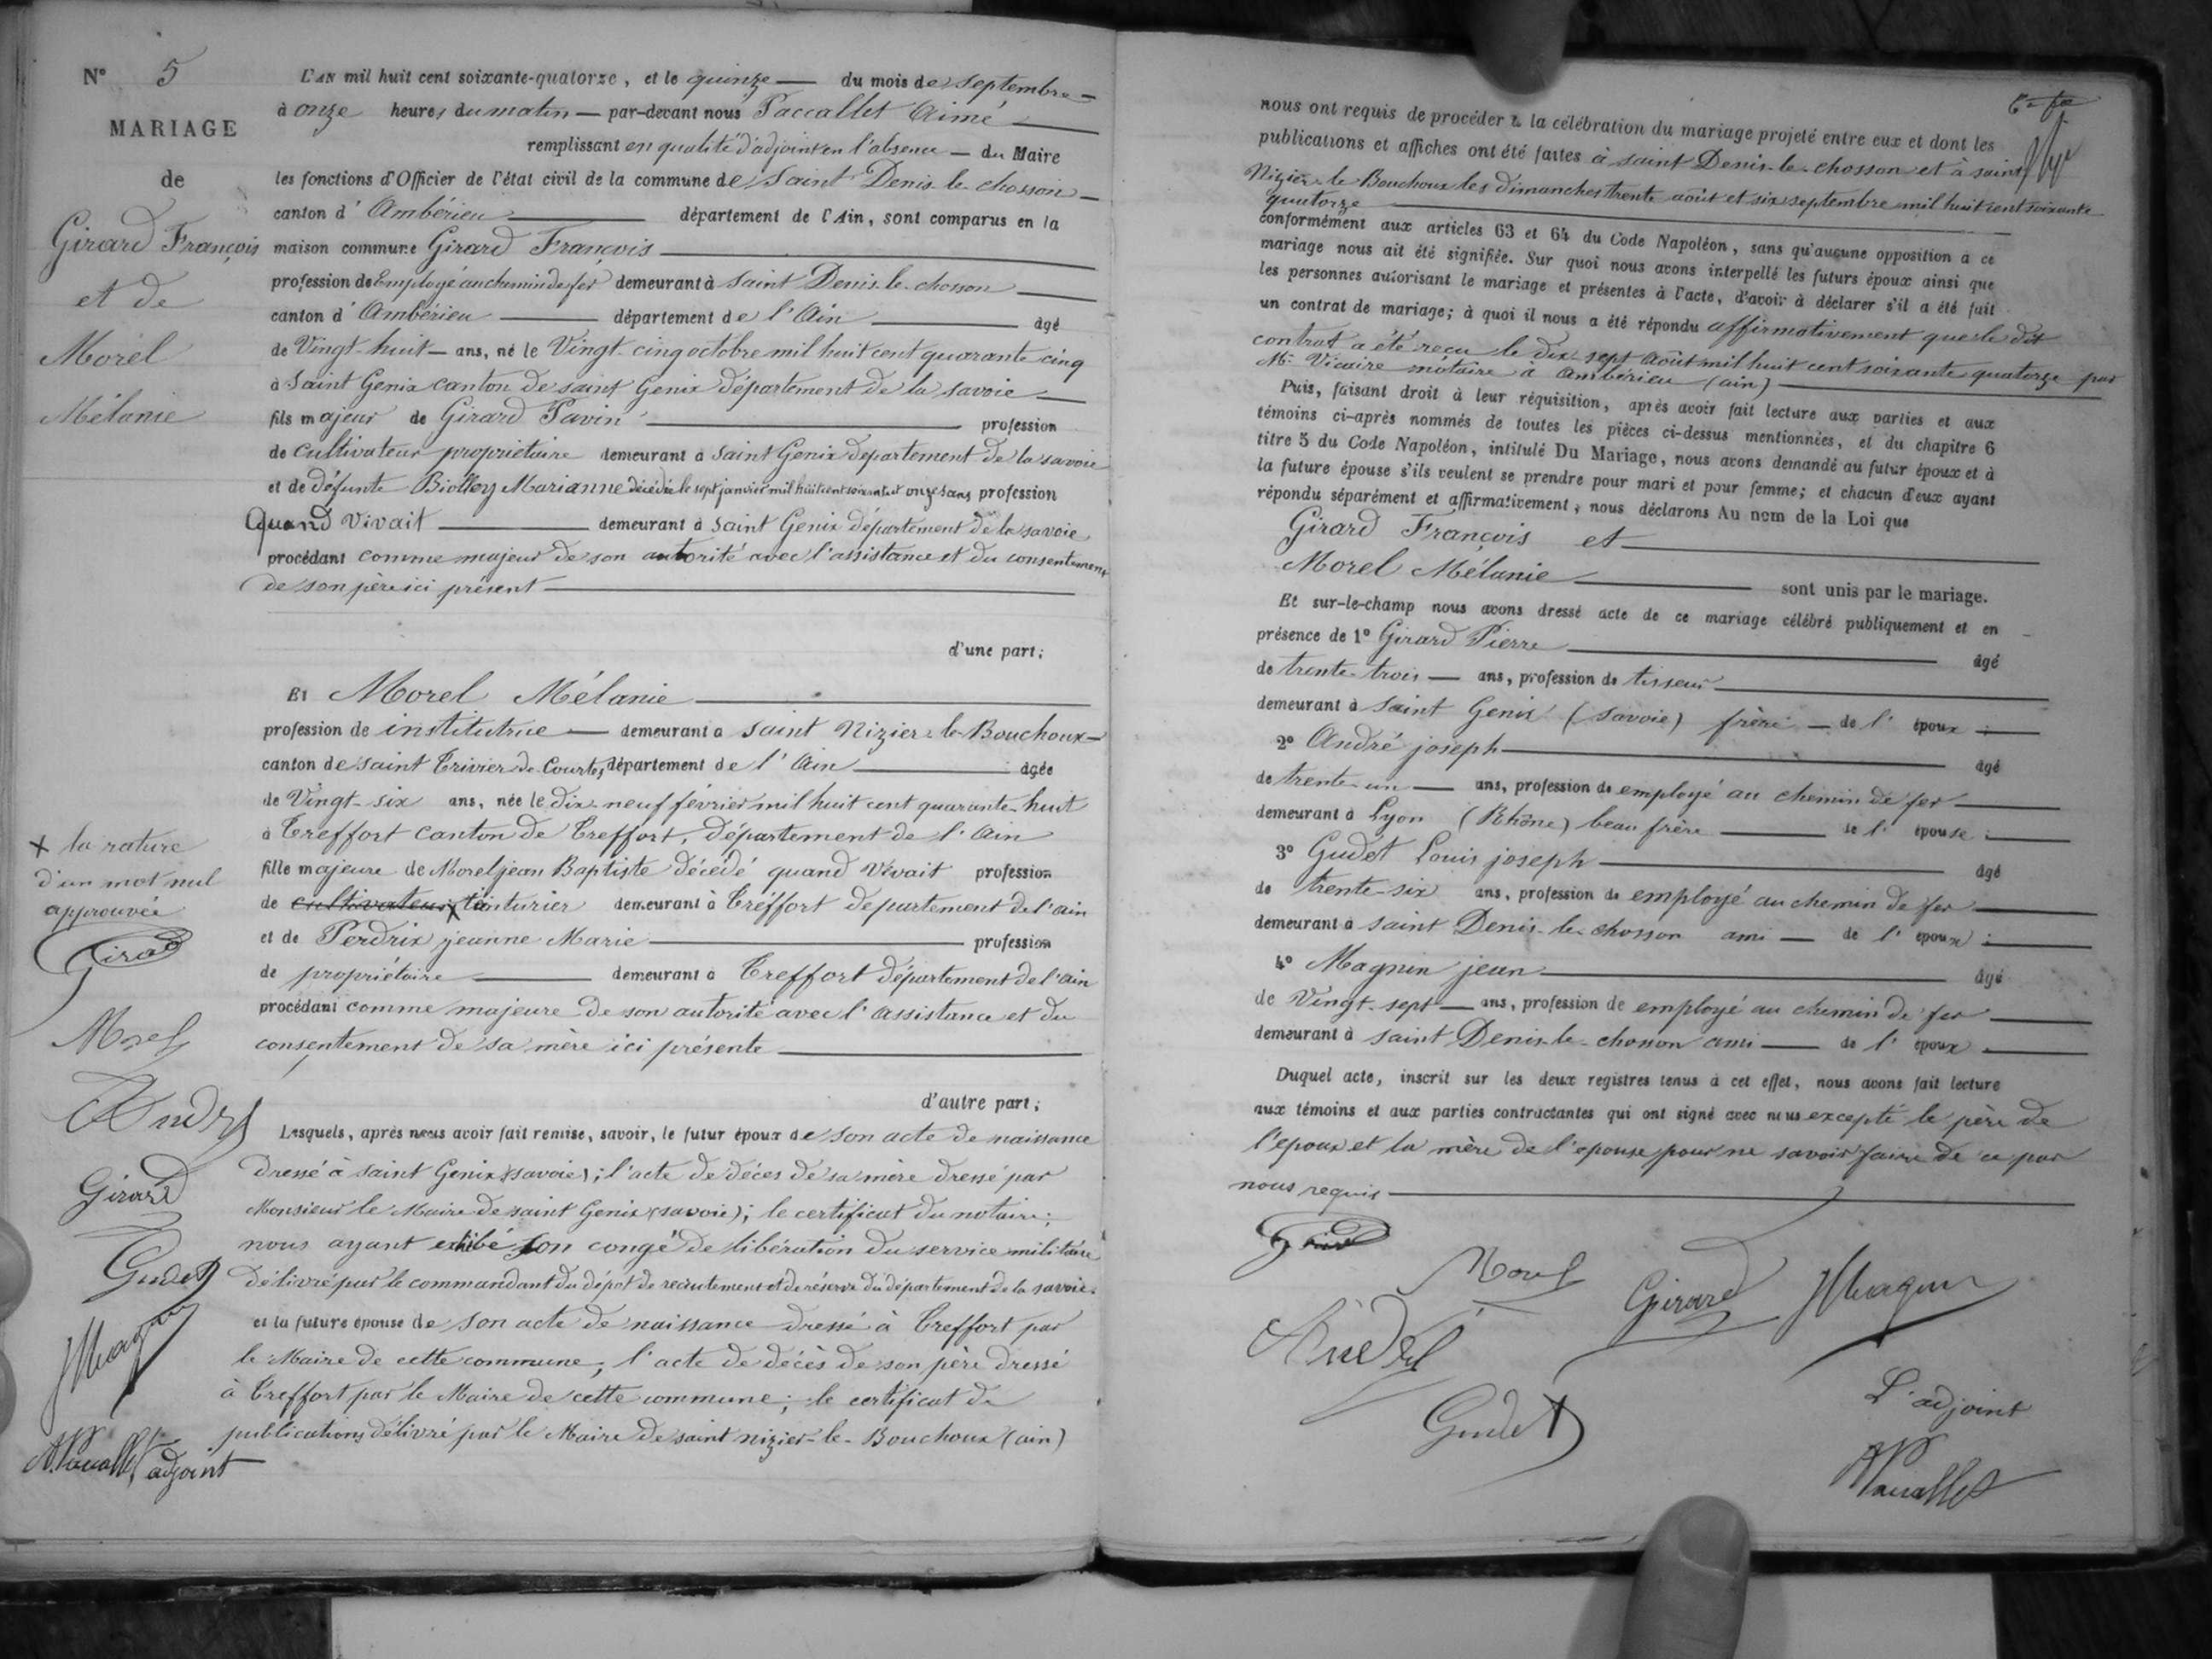 N° 5
MARIAGE
de
Girard François
et de
Morel
Mélanie
L'AN mil huit cent soixante-quatorze, et le quinze du mois de septembre
à onze heures du matin par-devant nous Paccallet Aimé
remplissant en qualité d'adjoint en l'absence du Maire
les fonctions d'Officier de l'état civil de la commune de Saint Denis-le-chosson
canton d'Ambérieu département de l'Ain, sont comparus en la
maison commune Girard François
profession de Employé au chemin de fer demeurant à Saint Denis-le-chosson
canton d'Ambérieu département de l'Ain âgé
de Vingt-huit ans, né le Vingt-cinq octobre mil huit cent quarante-cinq
à Saint Genix canton de saint Genix département de la savoie
fils majeur de Girard Pavin profession
de Cultivateur propriétaire demeurant à Saint Genix département de la savoie
et de défunte Biolley Marianne décédée le sept janvier mil huit cent soixante et onze sans profession
Quand vivait demeurant à Saint Genix département de la savoie
procédant comme majeur de son autorité avec l'assistance et du consentement
de son père ici présent
d'une part;
Et Morel Mélanie
profession de institutrice demeurant à saint Nizier-le-Bouchoux
canton de saint Trivier-de-Courtes département de l'Ain âgée
de Vingt-six ans, née le dix-neuf février mil huit cent quarante-huit
à Treffort canton de Treffort, département de l'Ain
fille majeure de Morel jean Baptiste décédé quand vivait profession
de cultivateur x tinturier demeurant à Tréffort département de l'ain
et de Perdrix jeanne Marie profession
de propriétaire demeurant à Treffort département de l'ain
procédant comme majeure de son autorité avec l'assistance et du
consentement de sa mère ici présente
d'autre part;
Lesquels, après nous avoir fait remise, savoir, le futur époux de son acte de naissance
dressé à saint Genix (savoie); l'acte de décès de sa mère dressé par
Monsieur le Maire de saint Genix (savoie); le certificat du notaire;
nous ayant exhibé son congé de libération du service militaire
délivré par le commandant du dépôt de recrutement et de réserve du département de la savoie.
et la future épouse de son acte de naissance dressé à Treffort par
le Maire de cette commune; l'acte de décès de son père dressé
à Treffort par le Maire de cette commune; le certificat de
publications délivré par le Maire de saint nizier-le-Bouchoux (ain)
x la rature
d'un mot nul
approuvée
Girard
Morel
André
Girard
Gudet
JMagnin
APaccallet adjoint
nous ont requis de procéder à la célébration du mariage projeté entre eux et dont les
publications et affiches ont été faites à saint Denis-le-chosson et à saint
Nizier-le-Bouchoux les dimanches trente août et six septembre mil huit cent soixante
quatorze
conformément aux articles 63 et 64 du Code Napoléon, sans qu'aucune opposition à ce
mariage nous ait été signifiée. Sur quoi nous avons interpellé les futurs époux ainsi que
les personnes autorisant le mariage et présentes à l'acte, d'avoir à déclarer s'il a été fait
un contrat de mariage; à quoi il nous a été répondu affirmativement que le dit
contrat a été reçu le dix-sept Août mil huit cent soixante quatorze par
Mr Vicaire notaire à ambérieu (ain)
Puis, faisant droit à leur réquisition, après avoir fait lecture aux parties et aux
témoins ci-après nommés de toutes les pièces ci-dessus mentionnées, et du chapitre 6
titre 5 du Code Napoléon, intitulé Du Mariage, nous avons demandé au futur époux et à
la future épouse s'ils veulent se prendre pour mari et pour femme; et chacun d'eux ayant
répondu séparément et affirmativement, nous déclarons Au nom de la Loi que
Girard François et
Morel Mélanie sont unis par le mariage.
Et sur-le-champ nous avons dressé acte de ce mariage célébré publiquement et en
présence de 1° Girard Pierre âgé
de trente-trois ans, profession de tisseur
demeurant à Saint Genix (Savoie) frère de l'époux
2° André joseph âgé
de trente-un ans, profession de employé au chemin de fer
demeurant à Lyon (Rhône) beau frère de l'épouse
3° Gudet Louis joseph âgé
de trente-six ans, profession de employé au chemin de fer
demeurant à saint Denis-le-chosson ami de l'époux
4° Magnin jean âgé
de Vingt-sept ans, profession de employé au chemin de fer
demeurant à saint Denis-le-chosson ami de l'époux
Duquel acte, inscrit sur les deux registres tenus à cet effet, nous avons fait lecture
aux témoins et aux parties contractantes qui ont signé avec nous excepté le père de
l'epoux et la mère de l'epouse pour ne savoir faire de ce par
nous requis
Girard
Morel
Girard
JMagnin
André
Gudet
L'adjoint
APaccallet